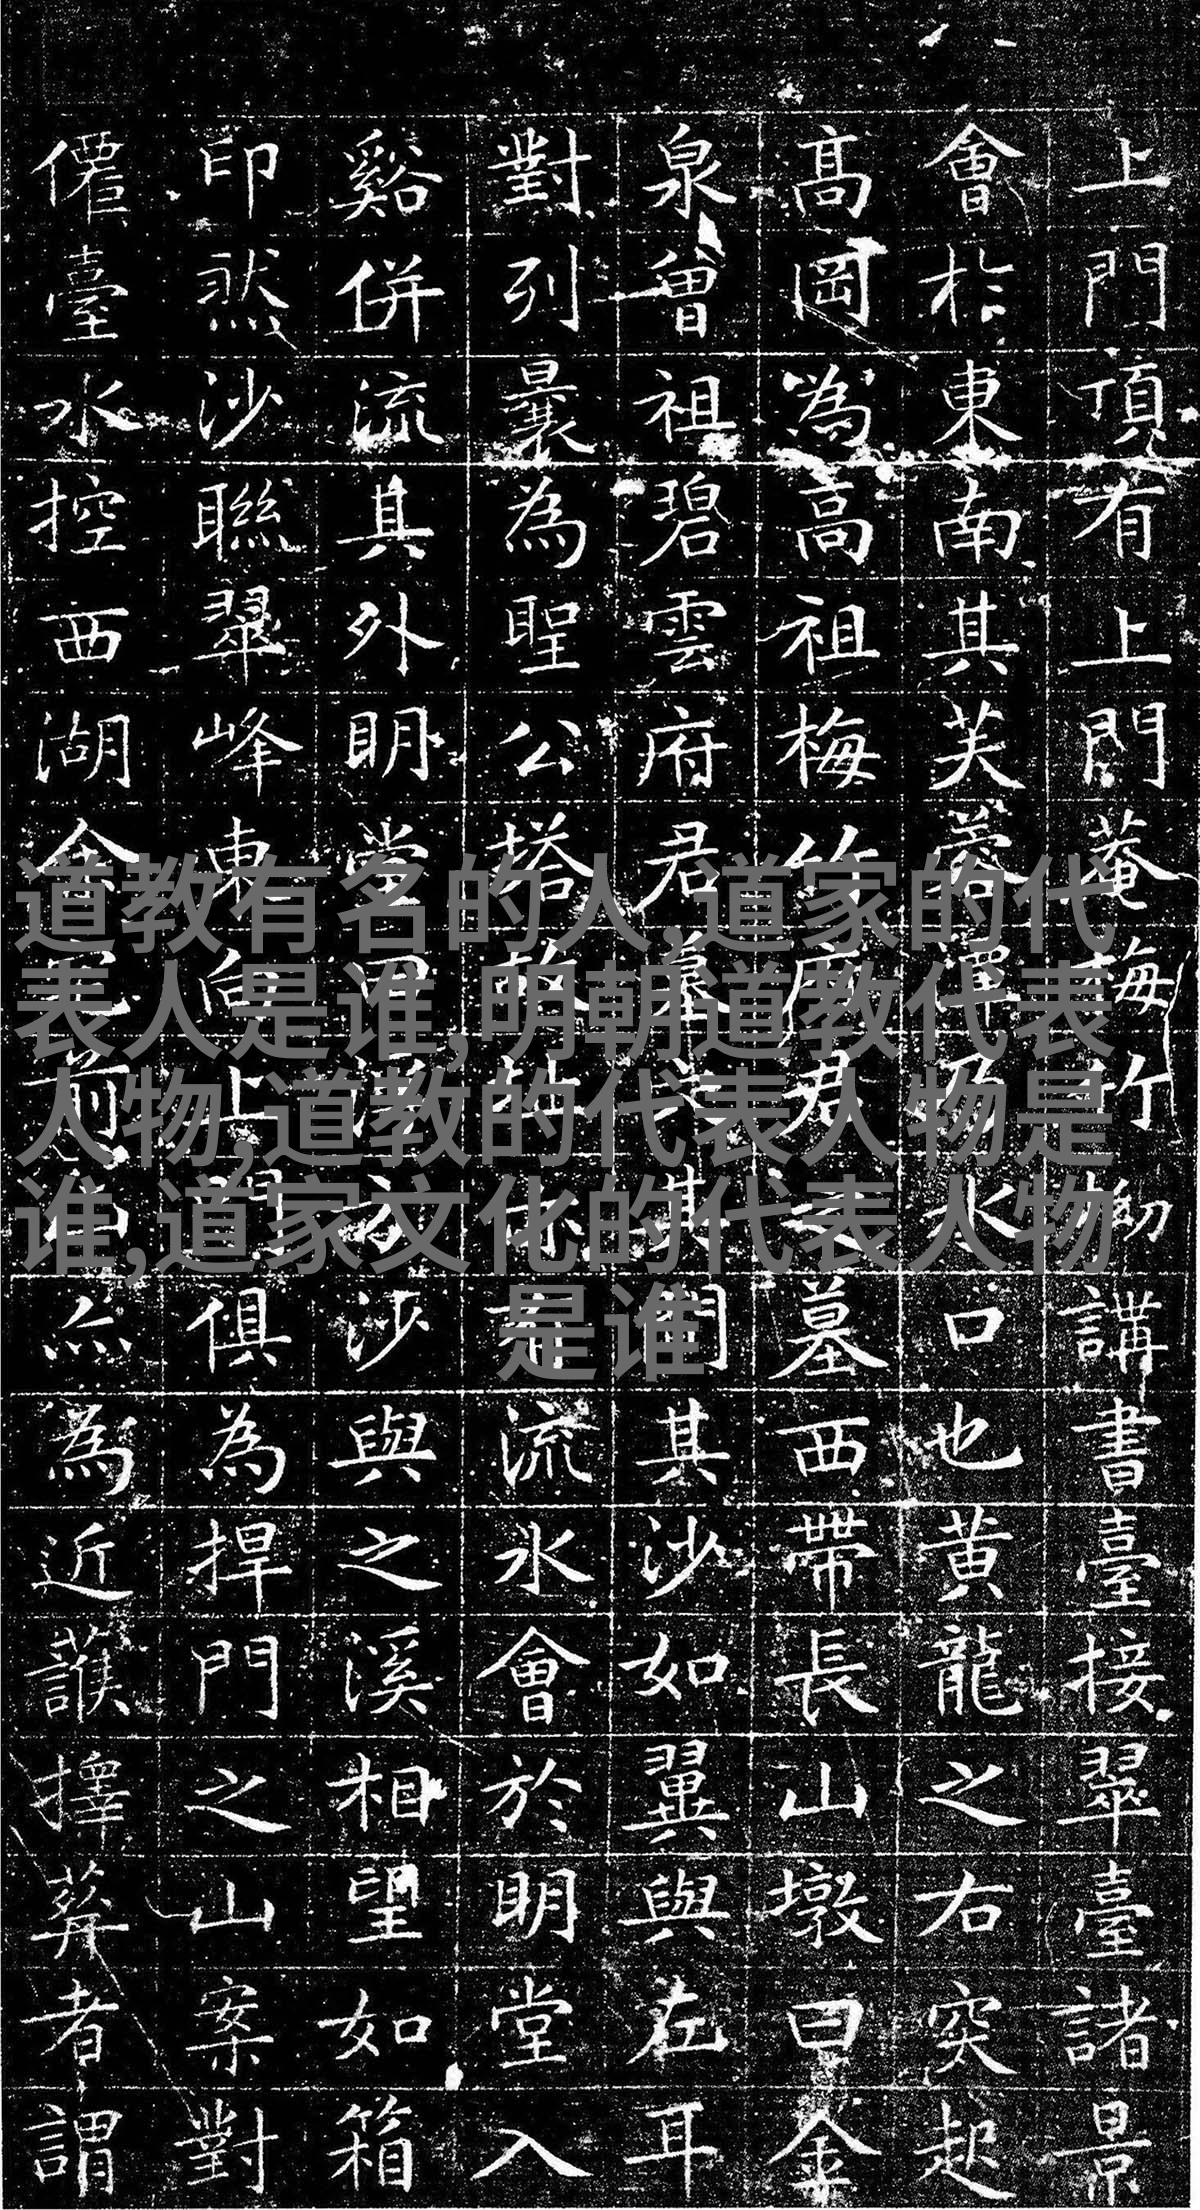 上門頂有上門菴梅竹坳講書臺接翠臺諸景
會於東南其芙蓉潭乃水口也黃龍之右突起
高岡為高祖梅竹府君之墓西帶長山墩曰金
泉曾祖碧雲府君墓其間其沙如翼與左耳
對列曩為聖公塔故址流水會於明堂入
谿併流其外明堂沙與之溪相望如箱
印然沙聯翠峰東向上俱為捍門之山案對
僊臺水控西湖前為近擇葬者謂
道教有名的人,道家的代
表人是谁,明朝道教代表
人物,道教的代表人物是
谁,道家文化的代表人物
是谁